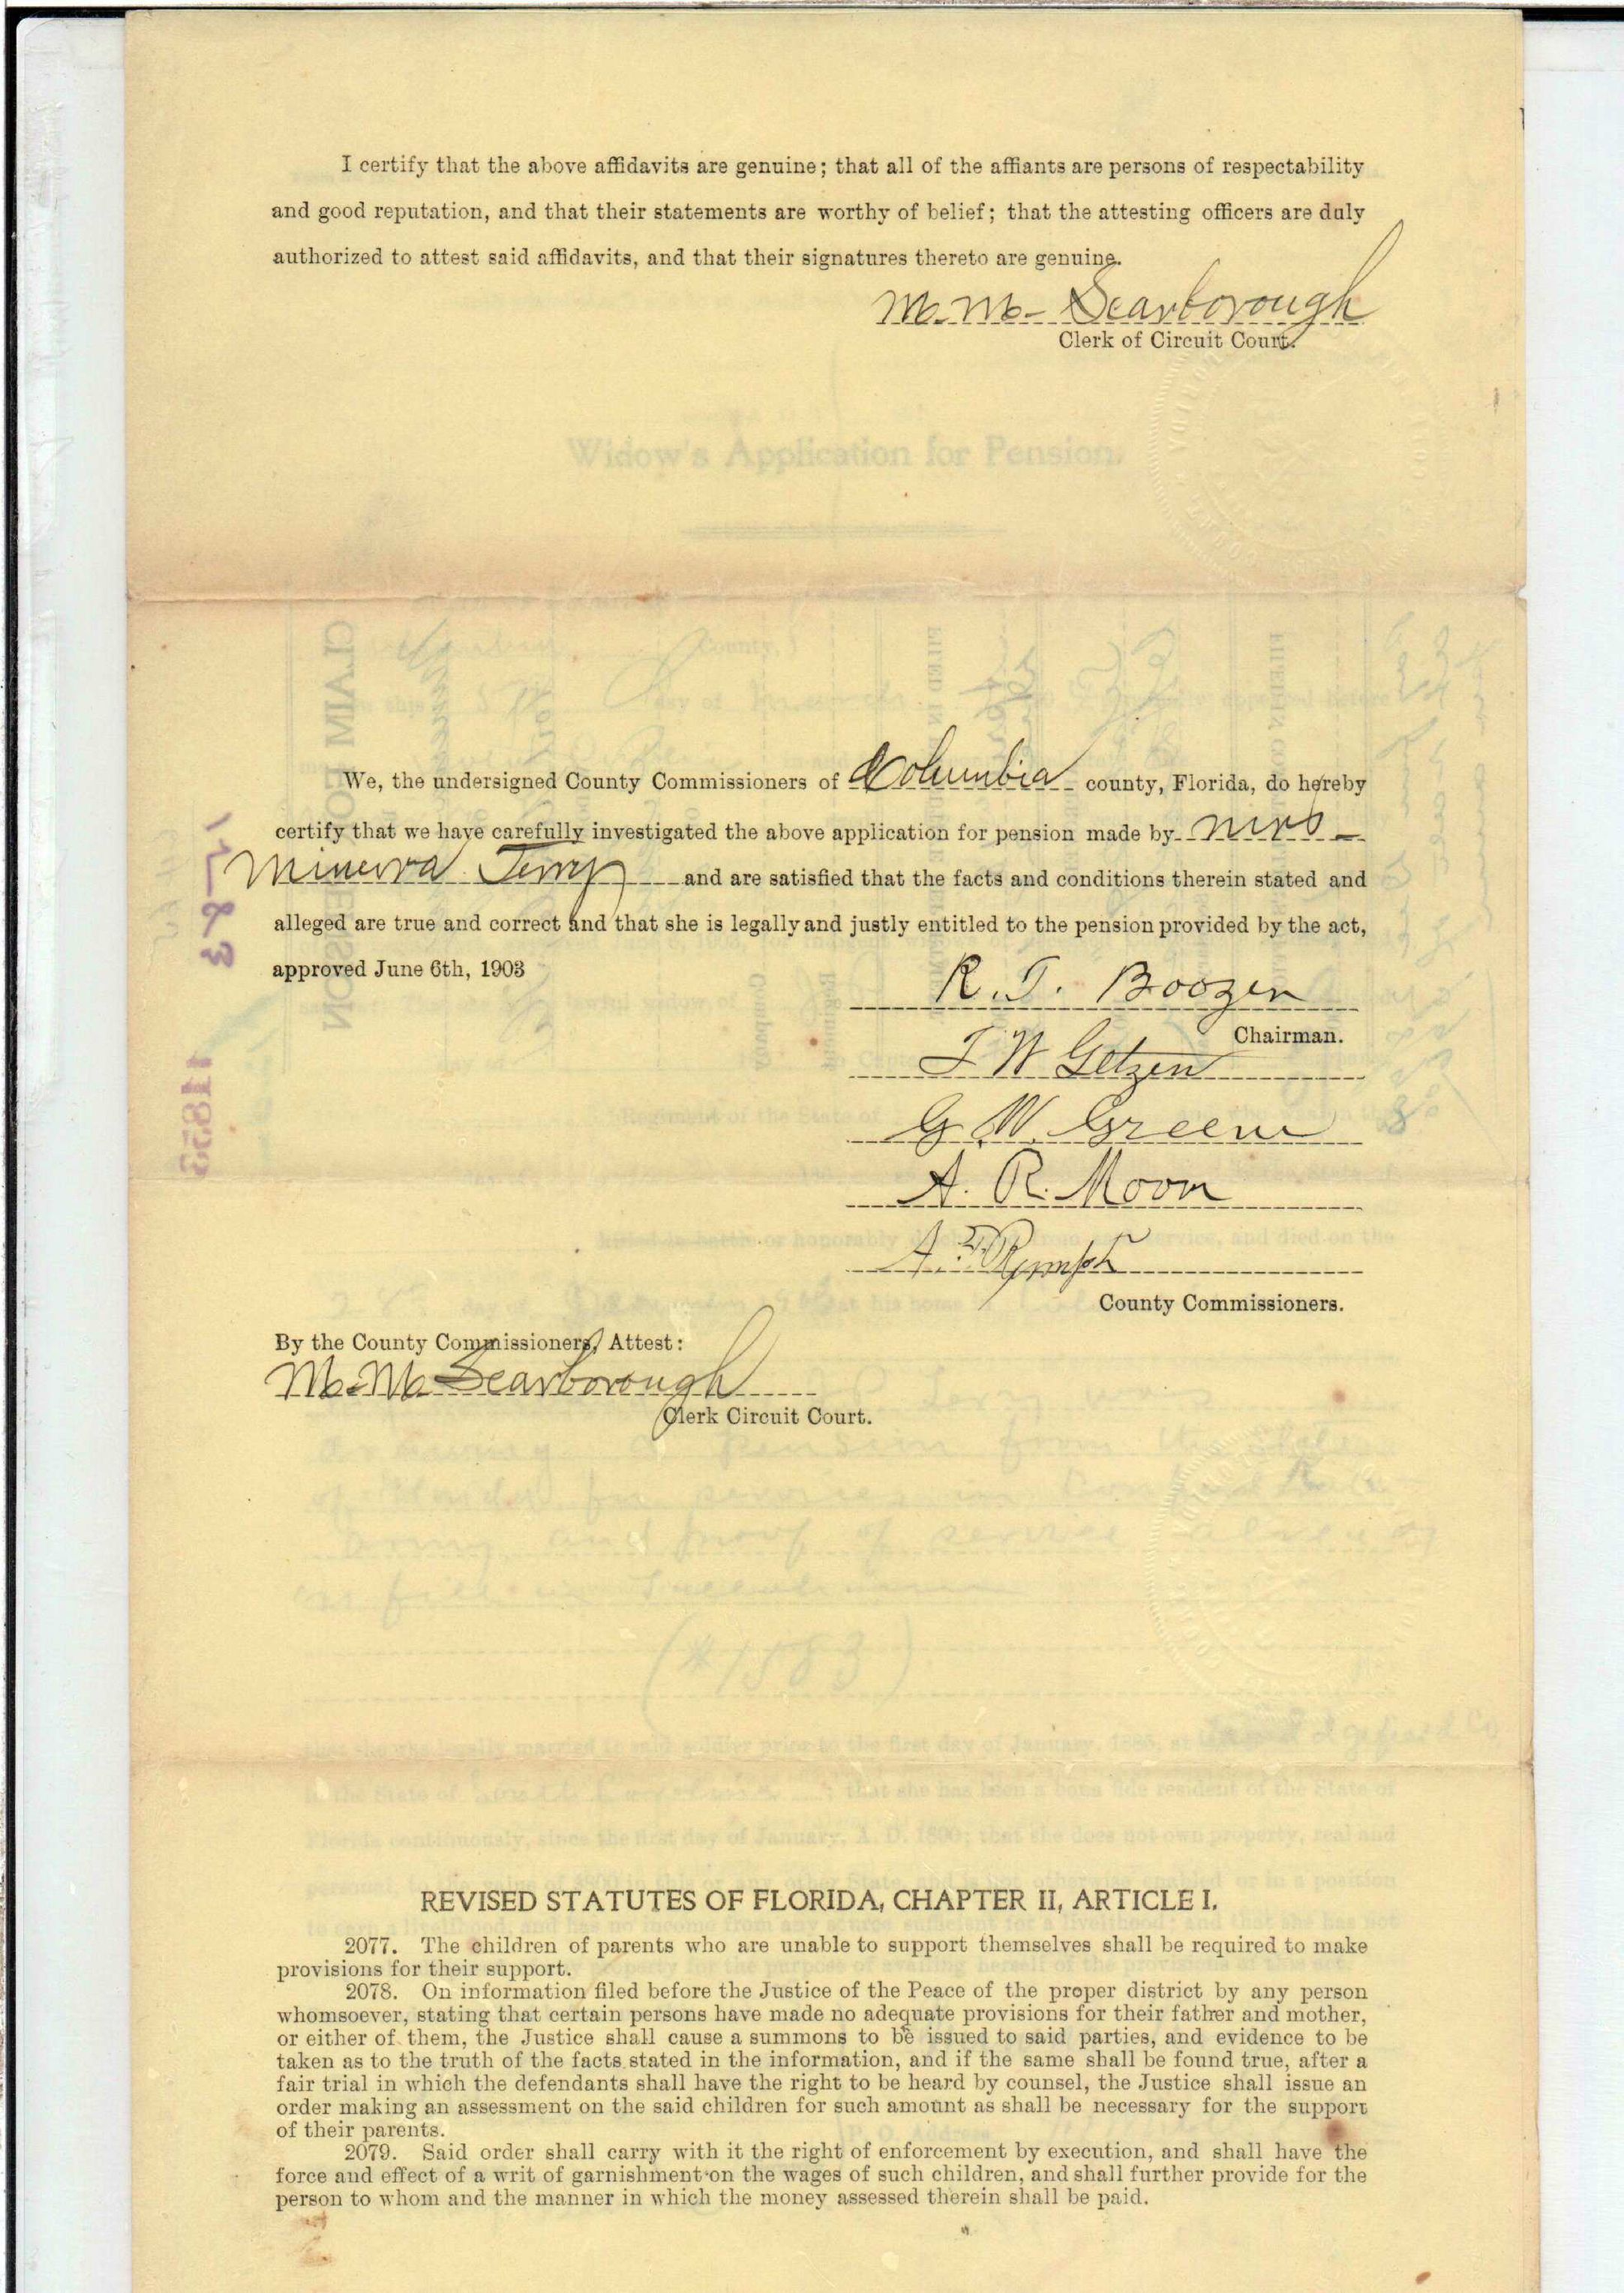 I certify that the above affidavits are genuine; that all of the affiants are persons of respectability
and good reputation, and that their statements are worthy of belief; that the attesting officers are duly
authorized to attest said affidavits, and that their signatures thereto are genuine.
M. M. Scarborough
Clerk of Circuit Court.
Widow's Application for Pension.
We, the undersigned County Commissioners of Columbia county, Florida, do hereby
certify that we have carefully investigated the above application for pension made by Mrs
Minerva Terry and are satisfied that the facts and conditions therein stated and
alleged are true and correct and that she is legally and justly entitled to the pension provided by the act,
approved June 6th, 1903
R. T. Boozer
Chairman.
T W Getzen
G. W. Greene
A. R. Moon
A. Rymph
County Commissioners.
By the County Commissioners, Attest:
M. M. Scarborough
Clerk Circuit Court.
(#1583)
REVISED STATUTES OF FLORIDA, CHAPTER II, ARTICLE I.
2077. The children of parents who are unable to support themselves shall be required to make
provisions for their support.
2078. On information filed before the Justice of the Peace of the proper district by any person
whomsoever, stating that certain persons have made no adequate provisions for their father and mother,
or either of them, the Justice shall cause a summons to be issued to said parties, and evidence to be
taken as to the truth of the facts stated in the information, and if the same shall be found true, after a
fair trial in which the defendants shall have the right to be heard by counsel, the Justice shall issue an
order making an assessment on the said children for such amount as shall be necessary for the support
of their parents.
2079. Said order shall carry with it the right of enforcement by execution, and shall have the
force and effect of a writ of garnishment on the wages of such children, and shall further provide for the
person to whom and the manner in which the money assessed therein shall be paid.